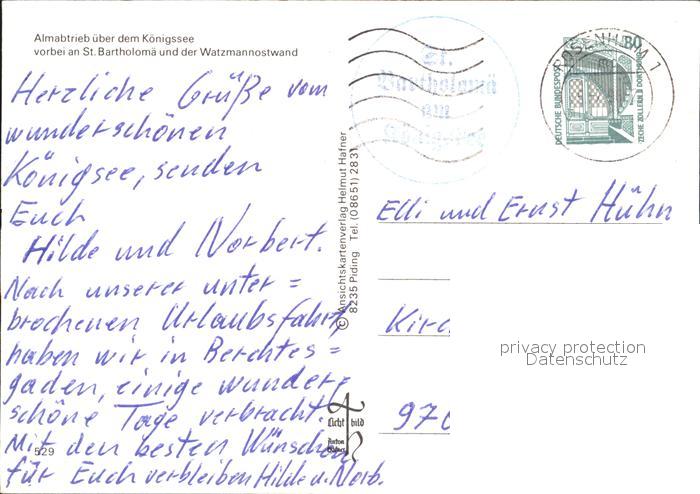 Almabtrieb über dem Königssee
vorbei an St. Bartholomä und der Watzmannostwand
Herzliche Grüße vom
wunderschönen
Königsee, senden
Euch
Hilde und Norbert.
Nach unserer unter=
brochenen Urlaubsfahrt,
haben wir in Berchtes=
gaden, einige wunder=
schöne Tage verbracht.
Mit den besten Wünschen
für Euch verbleiben Hilde u. Norb.
529
© Ansichtskartenverlag Helmut Hafner
8235 Piding Tel. (08651) 2831
Licht bild
St.
Bartholomä
am
Königssee
ROSENHEIM 1
80
DEUTSCHE BUNDESPOST
ZECHE ZOLLERN II DORTMUND
Elli und Ernst Hühn
Kirc
970
privacy protection
Datenschutz